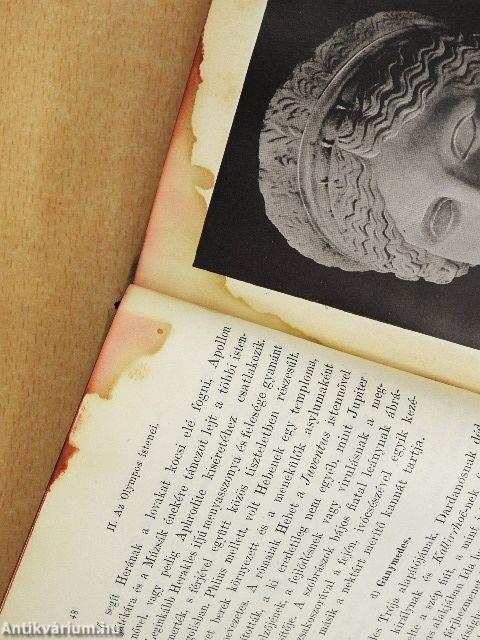 48
II. Az Olympos istenei.
segít Herának a lovakat kocsi elé fogni, Apollon
és a Múzsák énekére tánczot lejt a többi isten-
vagy pedig Aphrodite kiséretéhez csatlakozik.
Herakles ifjú menyasszonya és felesége gyanánt
férjével együtt közös tiszteletben részesült.
mellett, volt Hebenek egy temploma,
berek környezett és a menekülők asylumaként
A rómaiak Hebét a Juventas istennővel
a ki eredetileg nem egyéb, mint Jupiter
a fejlődésnek vagy virulásnak a meg-
A szobrászok bájos fiatal leánynak ábrá-
a fején, ivócsészével egyik kezé-
másik a nektárt merítő kannát tartja.
d) Ganymedes.
Trója alapítójának, Dardanosnak
és Kallirrhoë-nek
a szép fiút, a mint
Ida
Antikvárium.hu